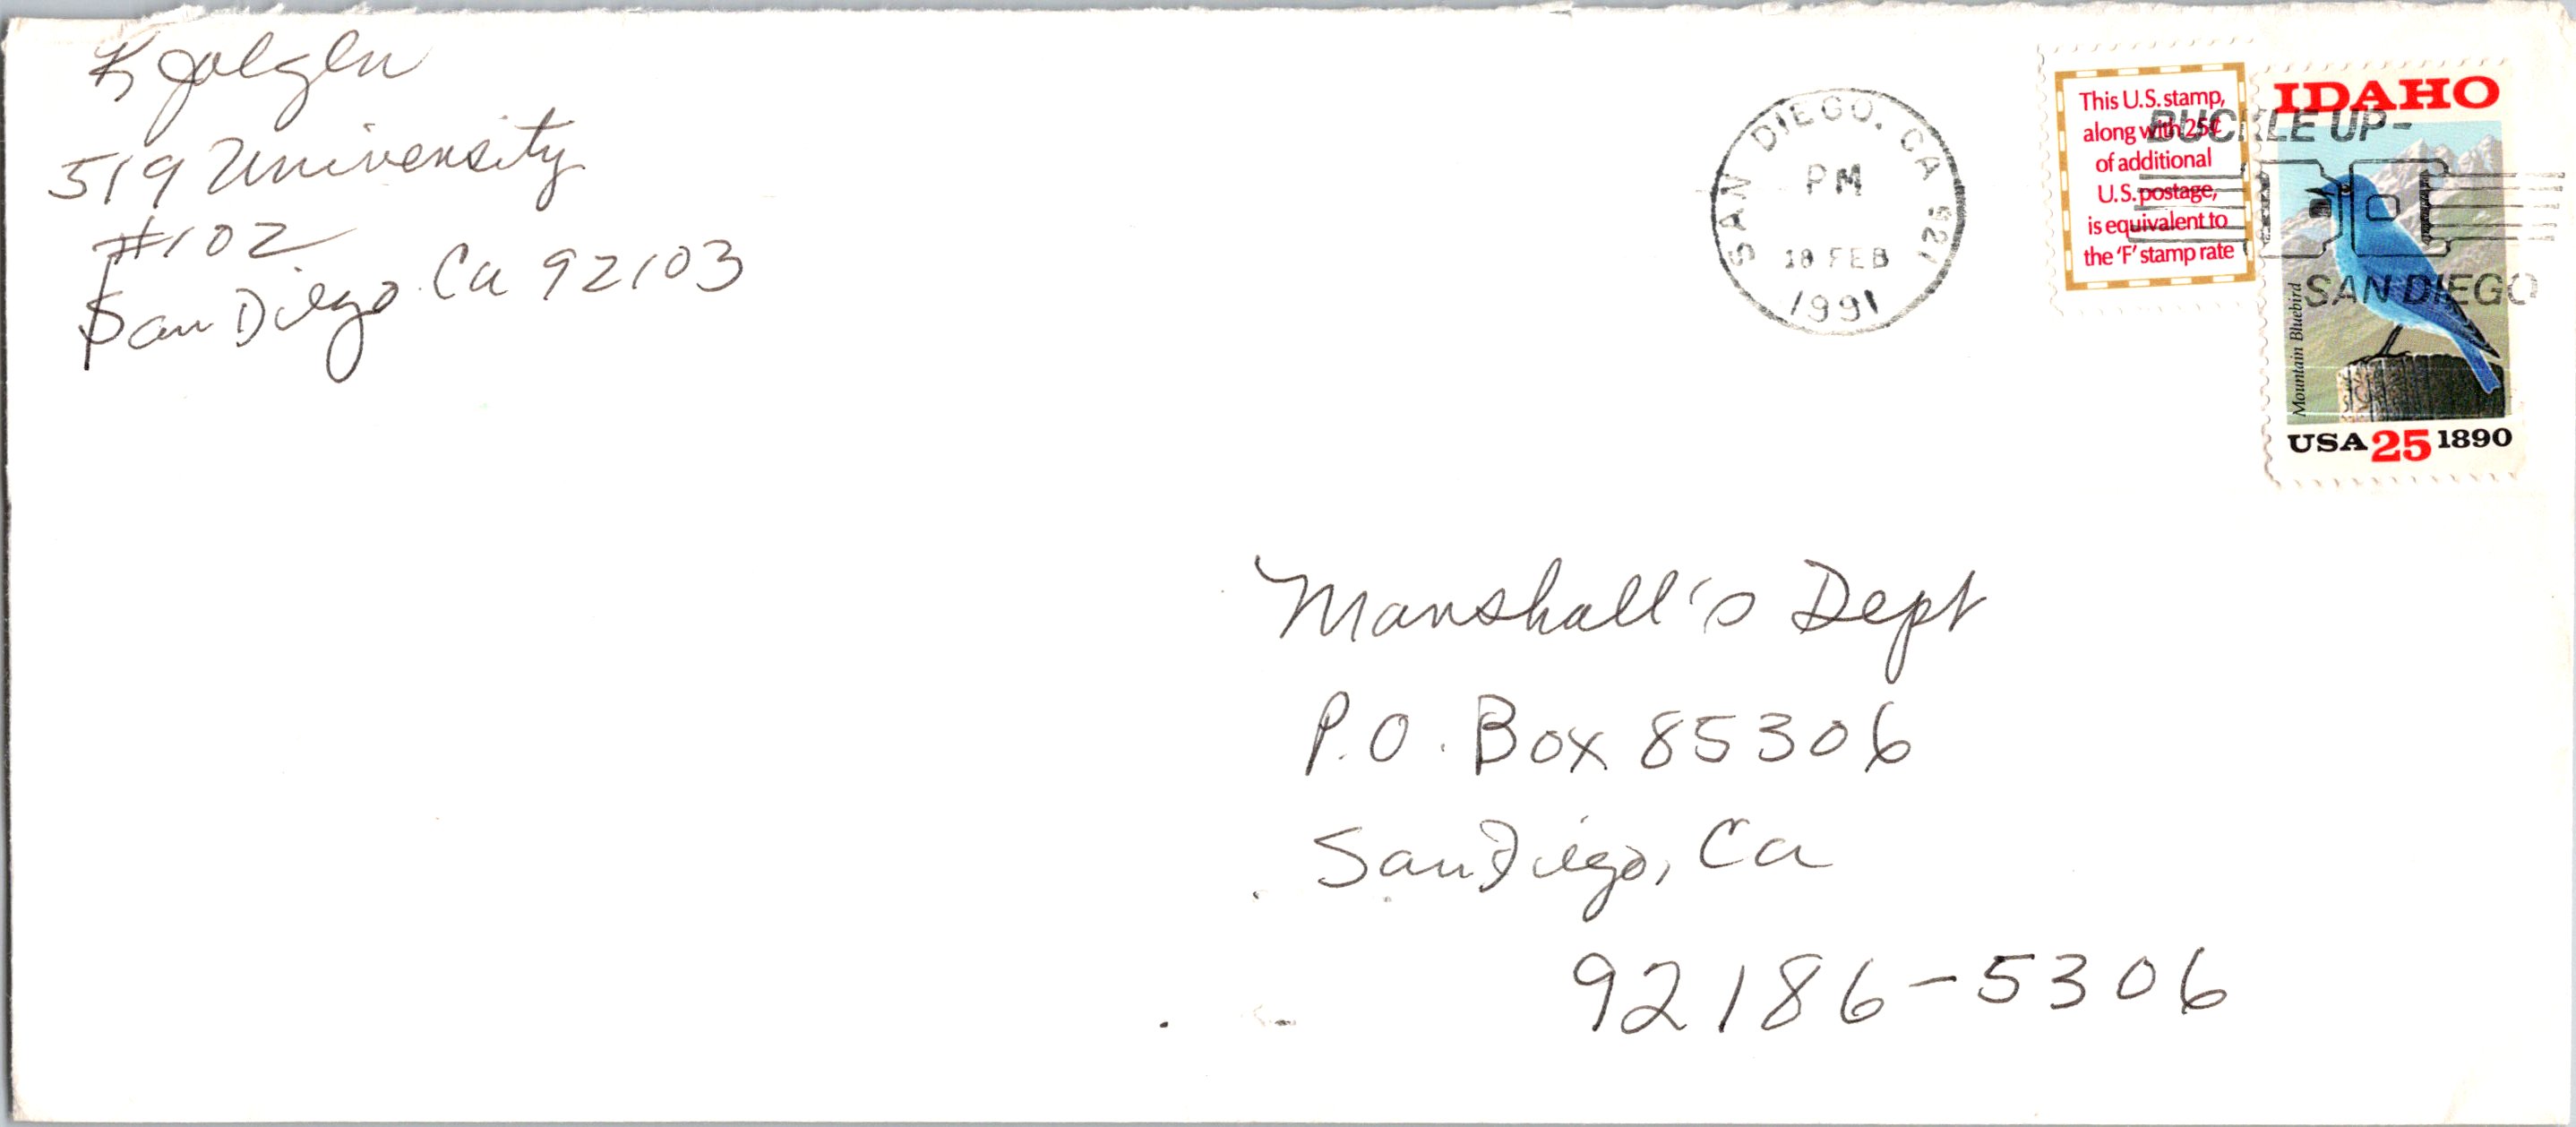 519 University
#102
San Diego Ca 92103
SAN DIEGO, CA 921
PM
FEB
1991
This U.S. stamp,
along with 25¢
of additional
U.S. postage,
is equivalent to
the 'F' stamp rate
BUCKLE UP-
SAN DIEGO
IDAHO
Mountain Bluebird
USA 25 1890
Marshall's Dept
P.O. Box 85306
San Diego, Ca
92186-5306